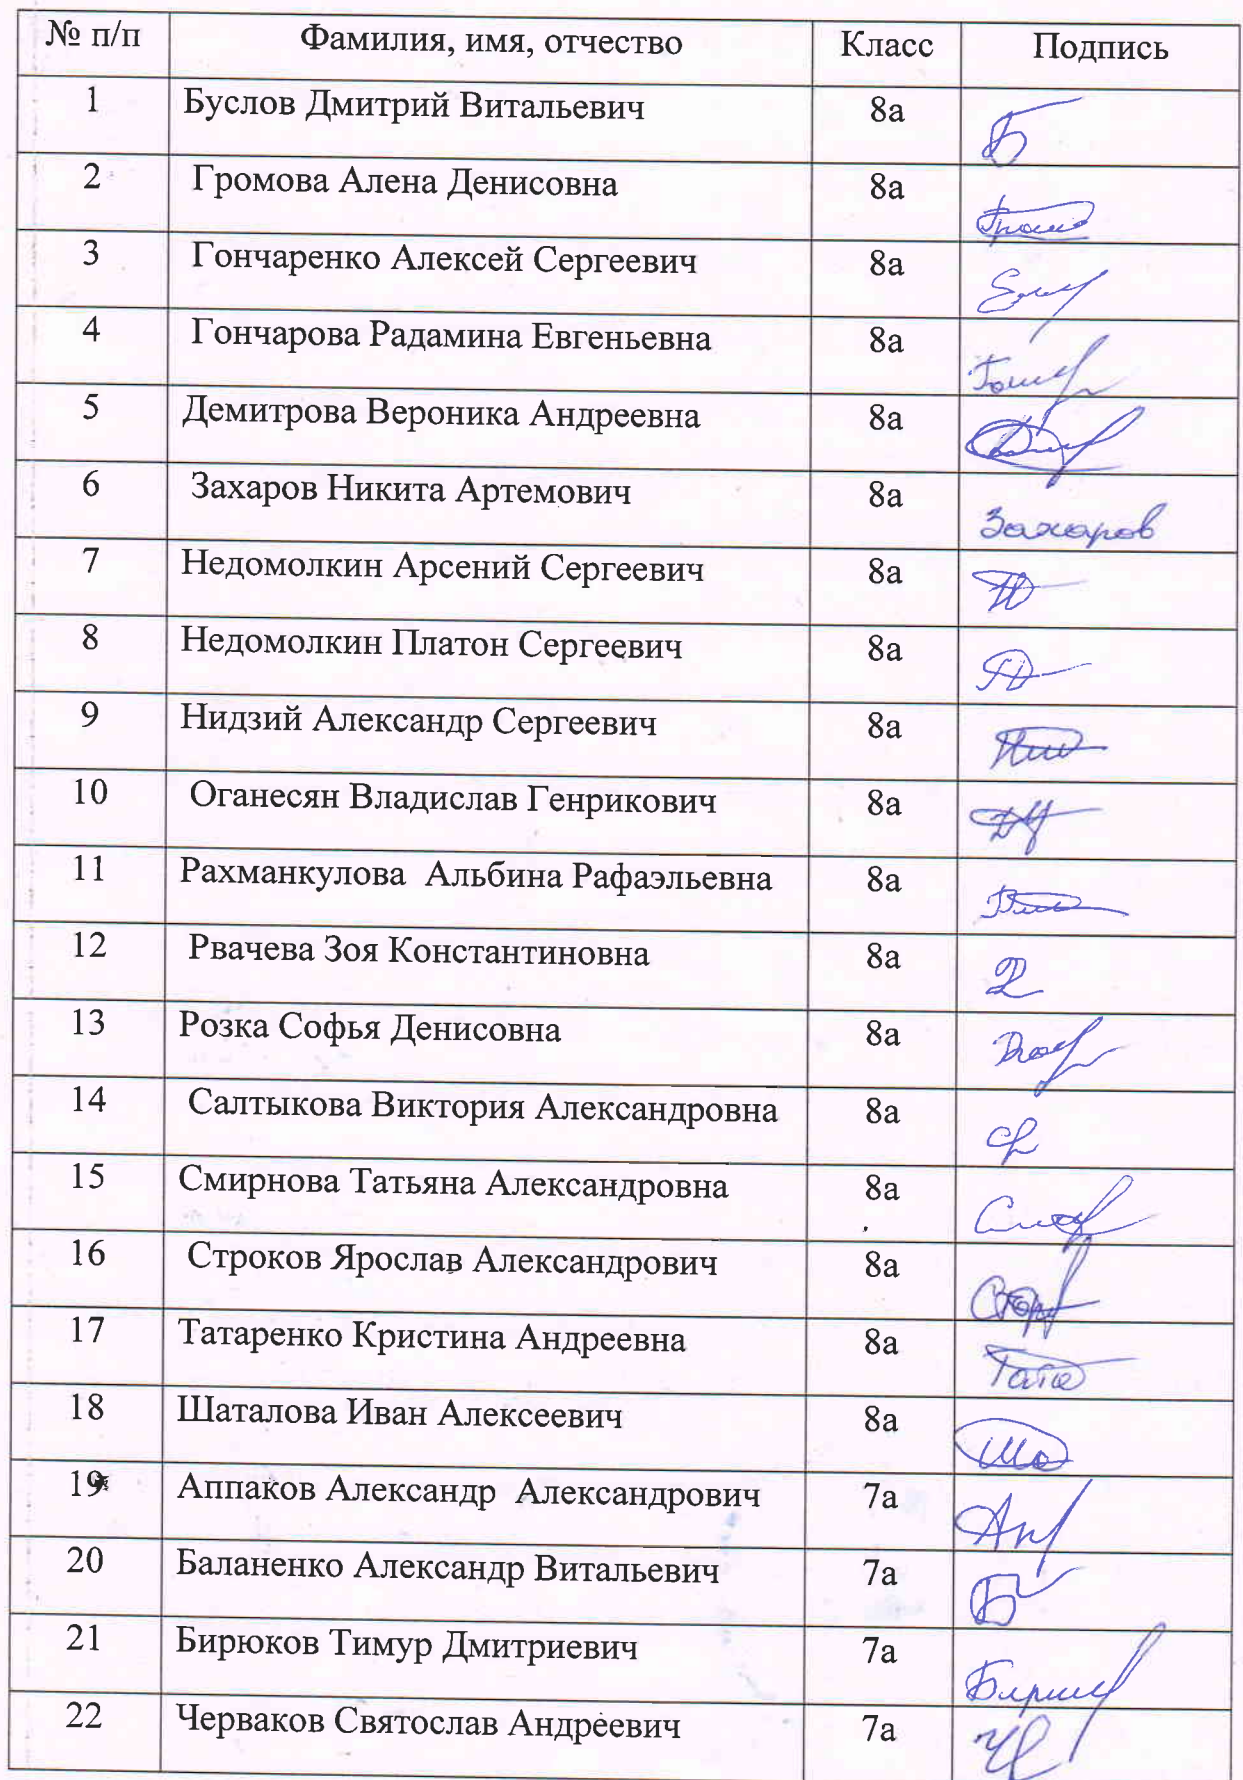 № п/п Фамилия, имя, отчество Класс Подпись
1 Буслов Дмитрий Витальевич 8а
2 Громова Алена Денисовна 8а
3 Гончаренко Алексей Сергеевич 8а
4 Гончарова Радамина Евгеньевна 8а
5 Демитрова Вероника Андреевна 8а
6 Захаров Никита Артемович 8а Захаров
7 Недомолкин Арсений Сергеевич 8а
8 Недомолкин Платон Сергеевич 8а
9 Нидзий Александр Сергеевич 8а
10 Оганесян Владислав Генрикович 8а
11 Рахманкулова Альбина Рафаэльевна 8а
12 Рвачева Зоя Константиновна 8а
13 Розка Софья Денисовна 8а
14 Салтыкова Виктория Александровна 8а
15 Смирнова Татьяна Александровна 8а
16 Строков Ярослав Александрович 8а
17 Татаренко Кристина Андреевна 8а
18 Шаталова Иван Алексеевич 8а
19 Аппаков Александр Александрович 7а
20 Баланенко Александр Витальевич 7а
21 Бирюков Тимур Дмитриевич 7а
22 Черваков Святослав Андреевич 7а